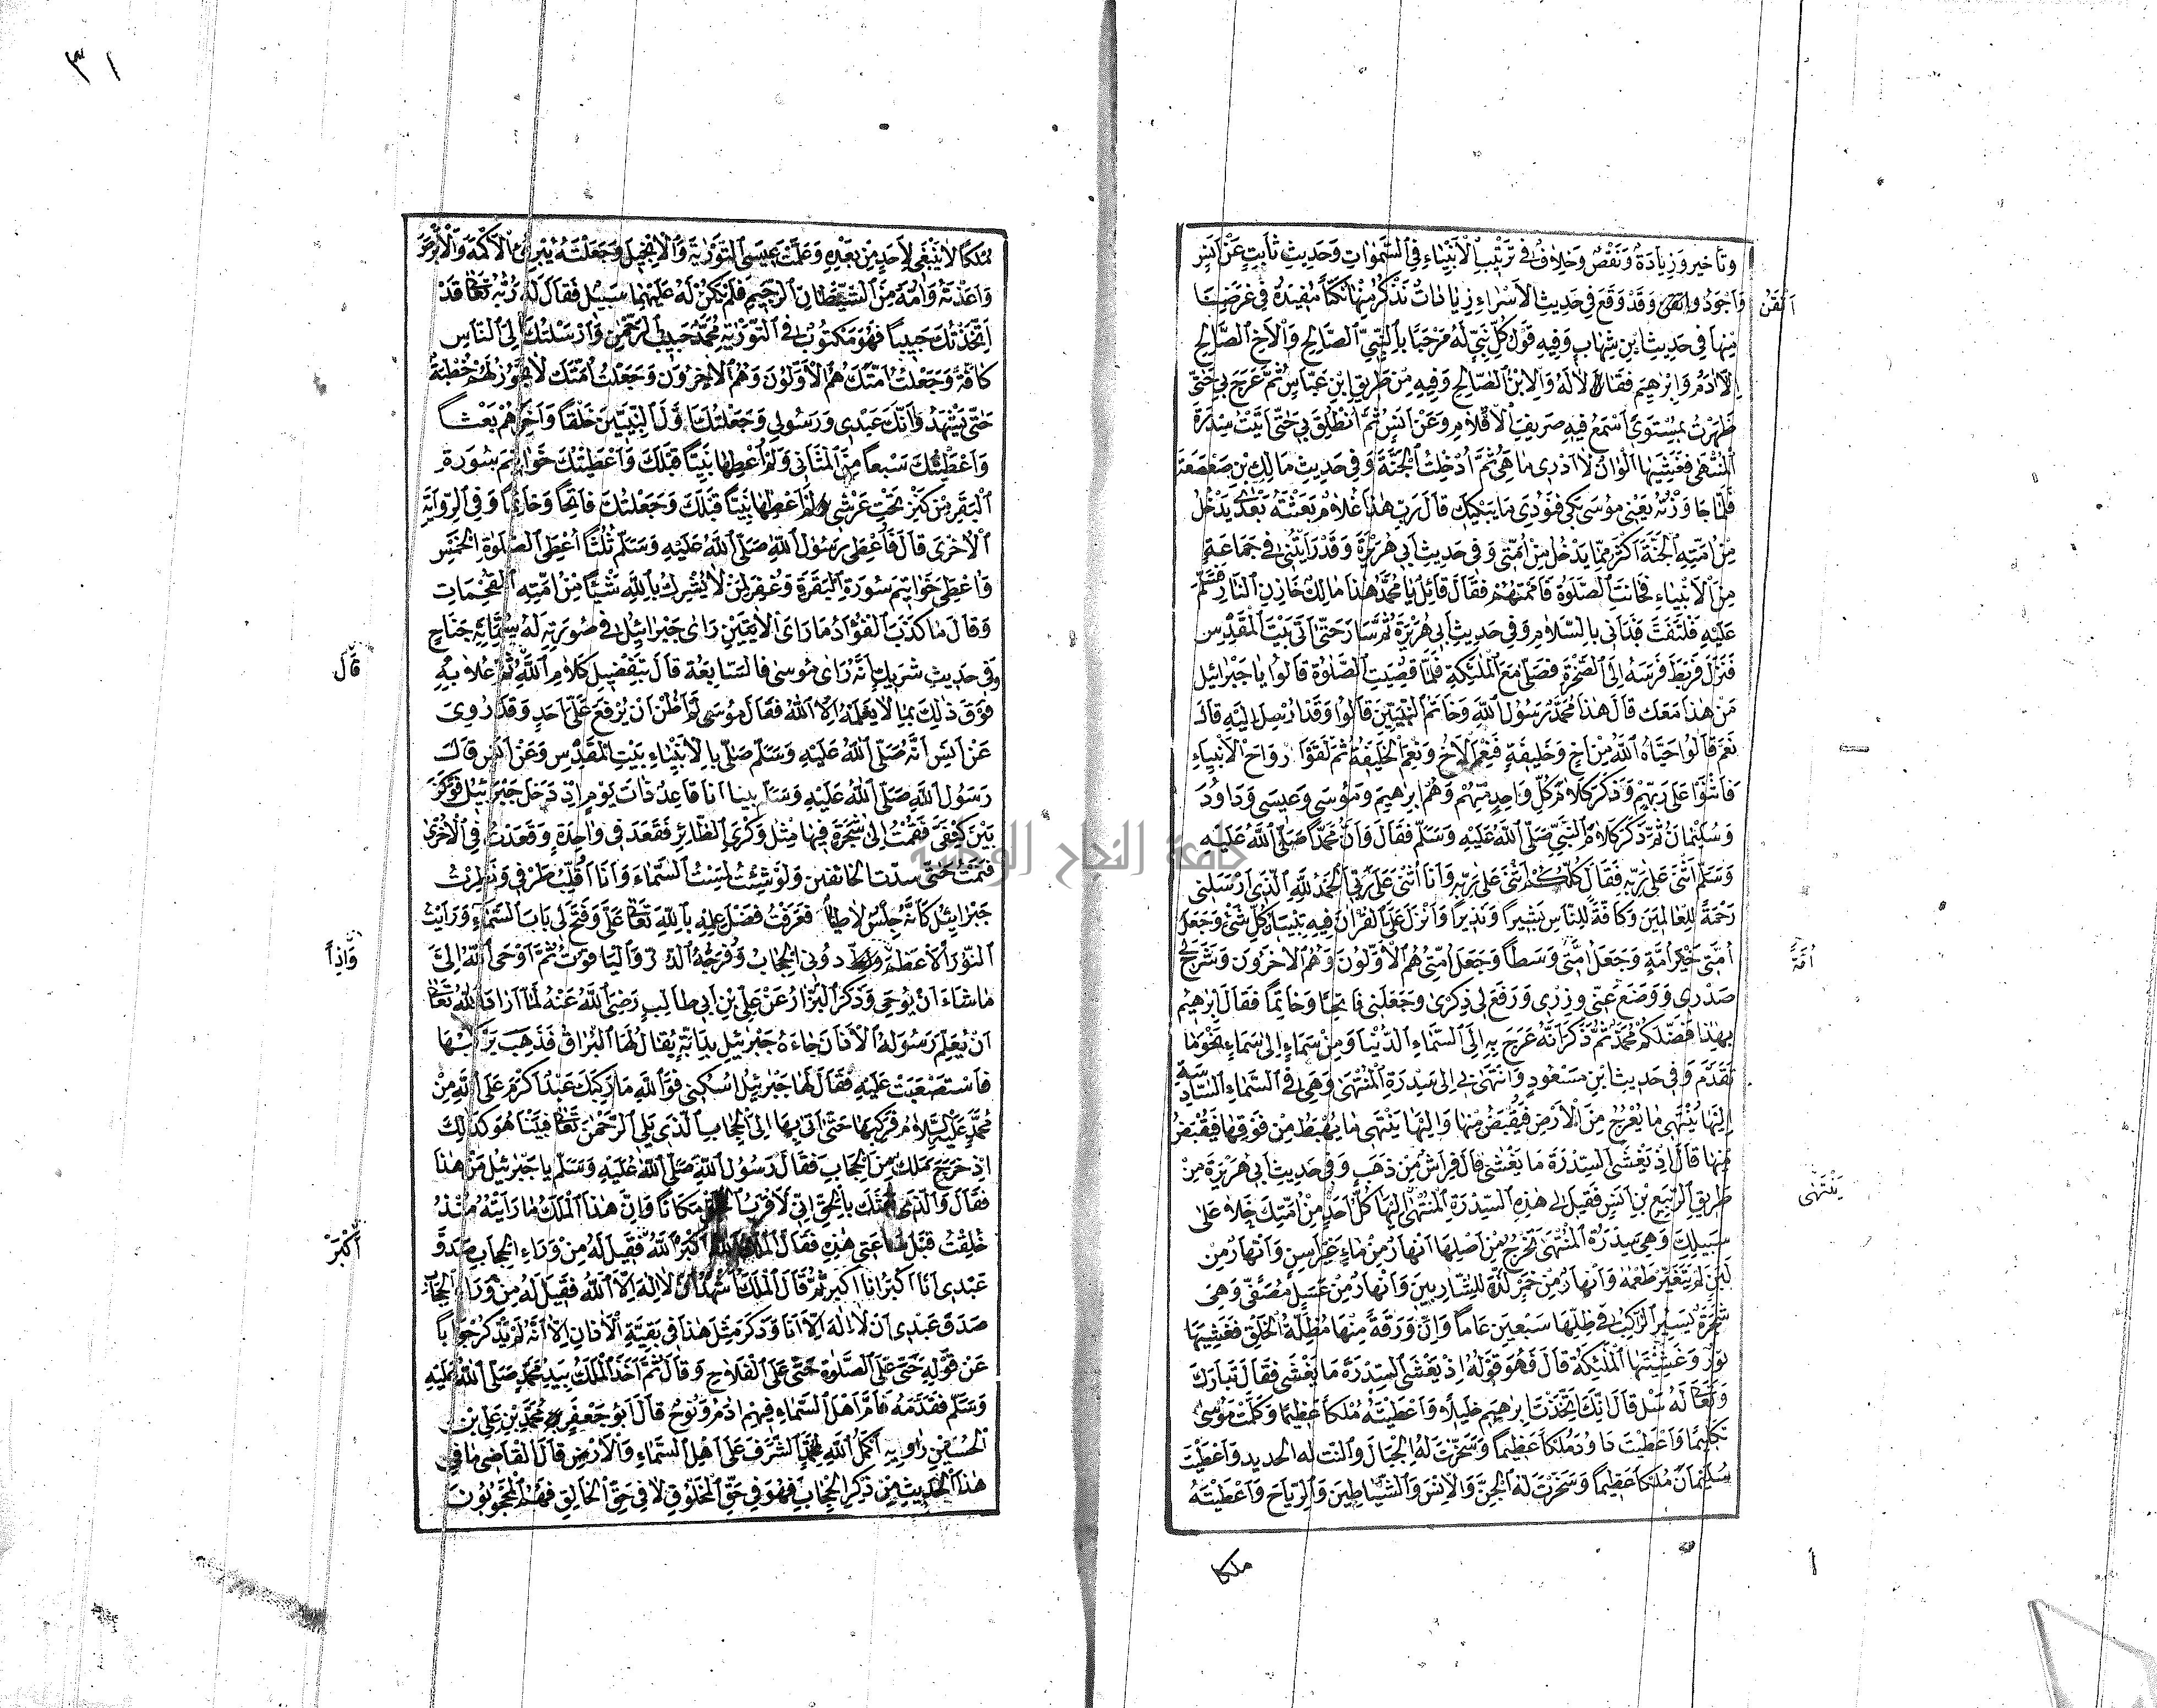 وَتَأْخِيرٌ وَزِيَادَةٌ وَنَقْصٌ وَخِلَافٌ فِي تَرْتِيبِ الْأَنْبِيَاءِ فِي السَّمٰوَاتِ وَحَدِيثُ ثَابِتٍ عَنْ أَنَسٍ
أَتْقَنُ
وَأَجْوَدُ وَقَدْ وَقَعَ فِي حَدِيثِ الْإِسْرَاءِ زِيَادَاتٌ نَذْكُرُ مِنْهَا نُكَتًا مُفِيدَةً فِي غَرَضِنَا
مِنْهَا فِي حَدِيثِ ابْنِ شِهَابٍ وَفِيهِ قَوْلُ كُلِّ نَبِيٍّ لَهُ مَرْحَبًا بِالنَّبِيِّ الصَّالِحِ وَالْأَخِ الصَّالِحِ
إِلَّا آدَمَ وَإِبْرٰهِيمَ فَقَالَا لَهُ وَالِابْنِ الصَّالِحِ وَفِيهِ مِنْ طَرِيقِ ابْنِ عَبَّاسٍ ثُمَّ عَرَجَ بِي حَتَّى
ظَهَرْتُ بِمُسْتَوًى أَسْمَعُ فِيهِ صَرِيفَ الْأَقْلَامِ وَعَنْ أَنَسٍ ثُمَّ انْطَلَقَ بِي حَتَّى أَتَيْتُ سِدْرَةَ
الْمُنْتَهَى فَغَشِيَهَا أَلْوَانٌ لَا أَدْرِي مَا هِيَ ثُمَّ أُدْخِلْتُ الْجَنَّةَ وَفِي حَدِيثِ مَالِكِ بْنِ صَعْصَعَةَ
فَلَمَّا جَاوَزْتُهُ يَعْنِي مُوسَى بَكَى فَنُودِيَ مَا يُبْكِيكَ قَالَ رَبِّ هٰذَا غُلَامٌ بَعَثْتَهُ بَعْدِي يَدْخُلُ
مِنْ أُمَّتِهِ الْجَنَّةَ أَكْثَرُ مِمَّا يَدْخُلُ مِنْ أُمَّتِي وَفِي حَدِيثِ أَبِي هُرَيْرَةَ وَقَدْ رَأَيْتُنِي فِي جَمَاعَةٍ
مِنَ الْأَنْبِيَاءِ فَحَانَتِ الصَّلَوةُ فَأَمَمْتُهُمْ فَقَالَ قَائِلٌ يَا مُحَمَّدُ هٰذَا مَالِكٌ خَازِنُ النَّارِ فَسَلِّمْ
عَلَيْهِ فَلْتَفَتَّ فَبَدَأَنِي بِالسَّلَامِ وَفِي حَدِيثِ أَبِي هُرَيْرَةَ ثُمَّ سَارَ حَتَّى أَتَى بَيْتَ الْمَقْدِسِ
فَنَزَلَ فَرَبَطَ فَرَسَهُ إِلَى الصَّخْرَةِ فَصَلَّى مَعَ الْمَلٰئِكَةِ فَلَمَّا قُضِيَتِ الصَّلٰوةُ قَالُوا يَا جَبْرَائِيلُ
مَنْ هٰذَا مَعَكَ قَالَ هٰذَا مُحَمَّدٌ رَسُولُ اللّٰهِ وَخَاتَمُ النَّبِيِّينَ قَالُوا وَقَدْ أُرْسِلَ إِلَيْهِ قَالَ
نَعَمْ قَالُوا حَيَّاهُ اللّٰهُ مِنْ أَخٍ وَخَلِيفَةٍ فَنِعْمَ الْأَخُ وَنِعْمَ الْخَلِيفَةُ ثُمَّ لَقُوا أَرْوَاحَ الْأَنْبِيَاءِ
فَأَثْنَوْا عَلَى رَبِّهِمْ وَذَكَرَ كَلَامَ كُلِّ وَاحِدٍ مِنْهُمْ وَهُمْ إِبْرٰهِيمُ وَمُوسَى وَعِيسَى وَدَاوُدُ
وَسُلَيْمَانُ ثُمَّ ذَكَرَ كَلَامَ النَّبِيِّ صَلَّى اللّٰهُ عَلَيْهِ وَسَلَّمَ فَقَالَ وَإِنَّ مُحَمَّدًا صَلَّى اللّٰهُ عَلَيْهِ
وَسَلَّمَ أَثْنَى عَلَى رَبِّهِ فَقَالَ كُلُّكُمْ أَثْنَى عَلَى رَبِّهِ وَأَنَا أُثْنِي عَلَى رَبِّي الْحَمْدُ لِلّٰهِ الَّذِي أَرْسَلَنِي
رَحْمَةً لِلْعَالَمِينَ وَكَافَّةً لِلنَّاسِ بَشِيرًا وَنَذِيرًا وَأَنْزَلَ عَلَيَّ الْقُرْآنَ فِيهِ تِبْيَانُ كُلِّ شَيْءٍ وَجَعَلَ
أُمَّتِي خَيْرَ أُمَّةٍ وَجَعَلَ أُمَّتِي وَسَطًا وَجَعَلَ أُمَّتِي هُمُ الْأَوَّلُونَ وَهُمُ الْآخِرُونَ وَشَرَحَ لِي
أُمَّةً
صَدْرِي وَوَضَعَ عَنِّي وِزْرِي وَرَفَعَ لِي ذِكْرِي وَجَعَلَنِي فَاتِحًا وَخَاتِمًا فَقَالَ إِبْرٰهِيمُ
بِهٰذَا فَضَلَكُمْ مُحَمَّدٌ ثُمَّ ذَكَرَ أَنَّهُ عَرَجَ بِهِ إِلَى السَّمَاءِ الدُّنْيَا وَمِنْ سَمَاءٍ إِلَى سَمَاءٍ نَحْوَ مَا
تَقَدَّمَ وَفِي حَدِيثِ ابْنِ مَسْعُودٍ وَانْتَهَى بِي إِلَى سِدْرَةِ الْمُنْتَهَى وَهِيَ فِي السَّمَاءِ السَّادِسَةِ
إِلَيْهَا يَنْتَهِي مَا يُعْرَجُ مِنَ الْأَرْضِ فَيُقْبَضُ مِنْهَا وَإِلَيْهَا يَنْتَهِي مَا يُهْبَطُ مِنْ فَوْقِهَا فَيُقْبَضُ
مِنْهَا قَالَ إِذْ يَغْشَى السِّدْرَةَ مَا يَغْشَى قَالَ فَرَاشٌ مِنْ ذَهَبٍ وَفِي حَدِيثِ أَبِي هُرَيْرَةَ مِنْ
يَنْتَهِي
طَرِيقِ الرَّبِيعِ بْنِ أَنَسٍ فَقِيلَ لِي هٰذِهِ السِّدْرَةُ الْمُنْتَهَى إِلَيْهَا كُلُّ أَحَدٍ مِنْ أُمَّتِكَ خَلَا عَلَى
سَبِيلِكَ وَهِيَ سِدْرَةُ الْمُنْتَهَى يَخْرُجُ مِنْ أَصْلِهَا أَنْهَارٌ مِنْ مَاءٍ غَيْرِ آسِنٍ وَأَنْهَارٌ مِنْ
لَبَنٍ لَمْ يَتَغَيَّرْ طَعْمُهُ وَأَنْهَارٌ مِنْ خَمْرٍ لَذَّةٍ لِلشَّارِبِينَ وَأَنْهَارٌ مِنْ عَسَلٍ مُصَفًّى وَهِيَ
شَجَرَةٌ يَسِيرُ الرَّاكِبُ فِي ظِلِّهَا سَبْعِينَ عَامًا وَإِنَّ وَرَقَةً مِنْهَا مُظِلَّةُ الْخَلْقِ فَغَشِيَهَا
نُورٌ وَغَشِيَتْهَا الْمَلٰئِكَةُ قَالَ فَهُوَ قَوْلُهُ إِذْ يَغْشَى السِّدْرَةَ مَا يَغْشَى فَقَالَ تَبَارَكَ
وَتَعَالَى لَهُ سَلْ قَالَ إِنَّكَ اتَّخَذْتَ إِبْرٰهِيمَ خَلِيلًا وَأَعْطَيْتَهُ مُلْكًا عَظِيمًا وَكَلَّمْتَ مُوسَى
تَكْلِيمًا وَأَعْطَيْتَ دَاوُدَ مُلْكًا عَظِيمًا وَسَخَّرْتَ لَهُ الْجِبَالَ وَأَلَنْتَ لَهُ الْحَدِيدَ وَأَعْطَيْتَ
سُلَيْمَانَ مُلْكًا عَظِيمًا وَسَخَّرْتَ لَهُ الْجِنَّ وَالْإِنْسَ وَالشَّيَاطِينَ وَالرِّيَاحَ وَأَعْطَيْتَهُ
ملكا
٣١
مُلْكًا لَا يَنْبَغِي لِأَحَدٍ مِنْ بَعْدِهِ وَعَلَّمْتَ عِيسَى التَّوْرٰيةَ وَالْإِنْجِيلَ وَجَعَلْتَهُ يُبْرِئُ الْأَكْمَهَ وَالْأَبْرَصَ
وَأَعَذْتَهُ وَأُمَّهُ مِنَ الشَّيْطَانِ الرَّجِيمِ فَلَمْ يَكُنْ لَهُ عَلَيْهِمَا سَبِيلٌ فَقَالَ لَهُ رَبُّهُ تَعَالَى قَدْ
اتَّخَذْتُكَ حَبِيبًا فَهُوَ مَكْتُوبٌ فِي التَّوْرٰيةِ مُحَمَّدٌ حَبِيبُ الرَّحْمٰنِ وَأَرْسَلْتُكَ إِلَى النَّاسِ
كَافَّةً وَجَعَلْتُ أُمَّتَكَ هُمُ الْأَوَّلُونَ وَهُمُ الْآخِرُونَ وَجَعَلْتُ أُمَّتَكَ لَا تَجُوزُ لَهُمْ خُطْبَةٌ
حَتَّى يَشْهَدُوا أَنَّكَ عَبْدِي وَرَسُولِي وَجَعَلْتُكَ أَوَّلَ النَّبِيِّينَ خَلْقًا وَآخِرَهُمْ بَعْثًا
وَأَعْطَيْتُكَ سَبْعًا مِنَ الْمَثَانِي وَلَمْ أُعْطِهَا نَبِيًّا قَبْلَكَ وَأَعْطَيْتُكَ خَوَاتِيمَ سُورَةِ
الْبَقَرَةِ مِنْ كَنْزٍ تَحْتَ عَرْشِي لَمْ أُعْطِهَا نَبِيًّا قَبْلَكَ وَجَعَلْتُكَ فَاتِحًا وَخَاتِمًا وَفِي الرِّوَايَةِ
الْأُخْرَى قَالَ فَأُعْطِيَ رَسُولُ اللّٰهِ صَلَّى اللّٰهُ عَلَيْهِ وَسَلَّمَ ثَلٰثًا أُعْطِيَ الصَّلَوَاتِ الْخَمْسَ
وَأُعْطِيَ خَوَاتِيمَ سُورَةِ الْبَقَرَةِ وَغُفِرَ لِمَنْ لَا يُشْرِكُ بِاللّٰهِ شَيْئًا مِنْ أُمَّتِهِ الْمُقْحِمَاتِ
وَقَالَ مَا كَذَبَ الْفُؤَادُ مَا رَأَى الْآيَتَيْنِ رَأَى جَبْرَائِيلَ فِي صُورَتِهِ لَهُ سِتُّمِائَةِ جَنَاحٍ
وَفِي حَدِيثِ شَرِيكٍ أَنَّهُ رَأَى مُوسَى فِي السَّابِعَةِ قَالَ بِتَفْضِيلِ كَلَامِ اللّٰهِ ثُمَّ عَلَا بِهِ
قَالَ
فَوْقَ ذٰلِكَ بِمَا لَا يَعْلَمُهُ إِلَّا اللّٰهُ فَقَالَ مُوسَى لَمْ أَظُنَّ أَنْ يُرْفَعَ عَلَيَّ أَحَدٌ وَقَدْ رُوِيَ
عَنْ أَنَسٍ أَنَّهُ صَلَّى اللّٰهُ عَلَيْهِ وَسَلَّمَ صَلَّى بِالْأَنْبِيَاءِ بِبَيْتِ الْمَقْدِسِ وَعَنْ أَنَسٍ قَالَ
رَسُولُ اللّٰهِ صَلَّى اللّٰهُ عَلَيْهِ وَسَلَّمَ بَيْنَا أَنَا قَاعِدٌ ذَاتَ يَوْمٍ إِذْ دَخَلَ جَبْرَئِيلُ فَوَكَزَ
بَيْنَ كَتِفَيَّ فَقُمْتُ إِلَى شَجَرَةٍ فِيهَا مِثْلُ وَكْرَيِ الطَّائِرِ فَقَعَدَ فِي وَاحِدَةٍ وَقَعَدْتُ فِي الْأُخْرَى
فَنَمَتْ حَتَّى سَدَّتِ الْخَافِقَيْنِ وَلَوْ شِئْتُ لَمَسِسْتُ السَّمَاءَ وَأَنَا أُقَلِّبُ طَرْفِي وَنَظَرْتُ
جَبْرَائِيلَ كَأَنَّهُ حِلْسٌ لَاطِئًا فَعَرَفْتُ فَضْلَ عِلْمِهِ بِاللّٰهِ تَعَالَى عَلَيَّ وَفُتِحَ لِي بَابُ السَّمَاءِ وَرَأَيْتُ
النُّورَ الْأَعْظَمَ دُونِي الْحِجَابُ وَفُرَجُهُ الدُّرُّ وَالْيَاقُوتُ ثُمَّ أَوْحَى اللّٰهُ إِلَيَّ
وَإِذَا
مَا شَاءَ أَنْ يُوحِيَ وَذَكَرَ الْبَزَّارُ عَنْ عَلِيِّ بْنِ أَبِي طَالِبٍ رَضِيَ اللّٰهُ عَنْهُ لَمَّا أَرَادَ اللّٰهُ تَعَالَى
أَنْ يُعَلِّمَ رَسُولَهُ الْأَذَانَ جَاءَهُ جَبْرَئِيلُ بِدَابَّةٍ يُقَالُ لَهَا الْبُرَاقُ فَذَهَبَ يَرْكَبُهَا
فَاسْتَصْعَبَتْ عَلَيْهِ فَقَالَ لَهَا جَبْرَئِيلُ اسْكُنِي فَوَاللّٰهِ مَا رَكِبَكِ عَبْدٌ أَكْرَمُ عَلَى اللّٰهِ مِنْ
مُحَمَّدٍ عَلَيْهِ السَّلَامُ فَرَكِبَهَا حَتَّى أَتَى بِهَا إِلَى الْحِجَابِ الَّذِي يَلِي الرَّحْمٰنَ تَعَالَى فَبَيْنَا هُوَ كَذٰلِكَ
إِذْ خَرَجَ مَلَكٌ مِنَ الْحِجَابِ فَقَالَ رَسُولُ اللّٰهِ صَلَّى اللّٰهُ عَلَيْهِ وَسَلَّمَ يَا جَبْرَئِيلُ مَنْ هٰذَا
فَقَالَ وَالَّذِي بَعَثَكَ بِالْحَقِّ إِنِّي لَأَقْرَبُ الْخَلْقِ مَكَانًا وَإِنَّ هٰذَا الْمَلَكَ مَا رَأَيْتُهُ مُنْذُ
خُلِقْتُ قَبْلَ سَاعَتِي هٰذِهِ فَقَالَ الْمَلَكُ اللّٰهُ أَكْبَرُ اللّٰهُ فَقِيلَ لَهُ مِنْ وَرَاءِ الْحِجَابِ صَدَقَ
أَكْبَرُ
عَبْدِي أَنَا أَكْبَرُ أَنَا أَكْبَرُ ثُمَّ قَالَ الْمَلَكُ أَشْهَدُ أَنْ لَا إِلٰهَ إِلَّا اللّٰهُ فَقِيلَ لَهُ مِنْ وَرَاءِ الْحِجَابِ
صَدَقَ عَبْدِي أَنْ لَا إِلٰهَ إِلَّا أَنَا وَذَكَرَ مِثْلَ هٰذَا فِي بَقِيَّةِ الْأَذَانِ إِلَّا أَنَّهُ لَمْ يَذْكُرْ جَوَابًا
عَنْ قَوْلِهِ حَيَّ عَلَى الصَّلٰوةِ حَيَّ عَلَى الْفَلَاحِ وَقَالَ ثُمَّ أَخَذَ الْمَلَكُ بِيَدِ مُحَمَّدٍ صَلَّى اللّٰهُ عَلَيْهِ
وَسَلَّمَ فَقَدَّمَهُ فَأَمَّ أَهْلَ السَّمَاءِ فِيهِمْ آدَمُ وَنُوحٌ قَالَ أَبُو جَعْفَرٍ مُحَمَّدُ بْنُ عَلِيِّ بْنِ
الْحُسَيْنِ رَاوِيهِ أَكْمَلَ اللّٰهُ لِمُحَمَّدٍ الشَّرَفَ عَلَى أَهْلِ السَّمَاءِ وَالْأَرْضِ قَالَ الْقَاضِي مَا فِي
هٰذَا الْحَدِيثِ مِنْ ذِكْرِ الْحِجَابِ فَهُوَ فِي حَقِّ الْمَخْلُوقِ لَا فِي حَقِّ الْخَالِقِ فَهُمُ الْمَحْجُوبُونَ
جامعة النجاح الوطنية